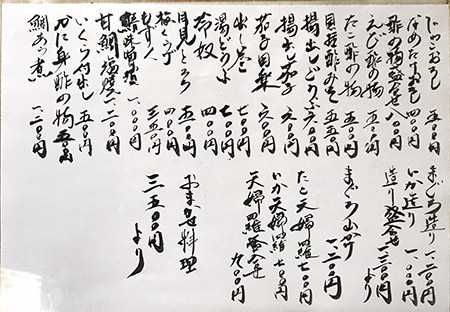 じゃこおろし 五〇〇円
四〇〇円
酢の物盛合せ 八〇〇円
えび酢の物 五五〇円
たこ酢の物 五五〇円
五五〇円
揚出しどうふ 六〇〇円
揚出し茄子 六〇〇円
茄子田楽 六〇〇円
出し巻 七〇〇円
湯どうふ 七〇〇円
冷奴 四〇〇円
月見とろろ 五〇〇円
梅くらげ 四〇〇円
もずく 三五〇円
一、〇〇〇円
甘鯛塩焼 一、二〇〇円
いくら付出し 五五〇円
かに身酢の物
鯛あら煮 一、二〇〇円
まぐろ造り 一、二〇〇円
いか造り 一、〇〇〇円
造り盛合せ 一、三〇〇円より
まぐろ山かけ 一、二〇〇円
たこ天婦羅 七〇〇円
いか天婦羅 七〇〇円
天婦羅盛合せ 九〇〇円
おまかせ料理
三五〇〇円より